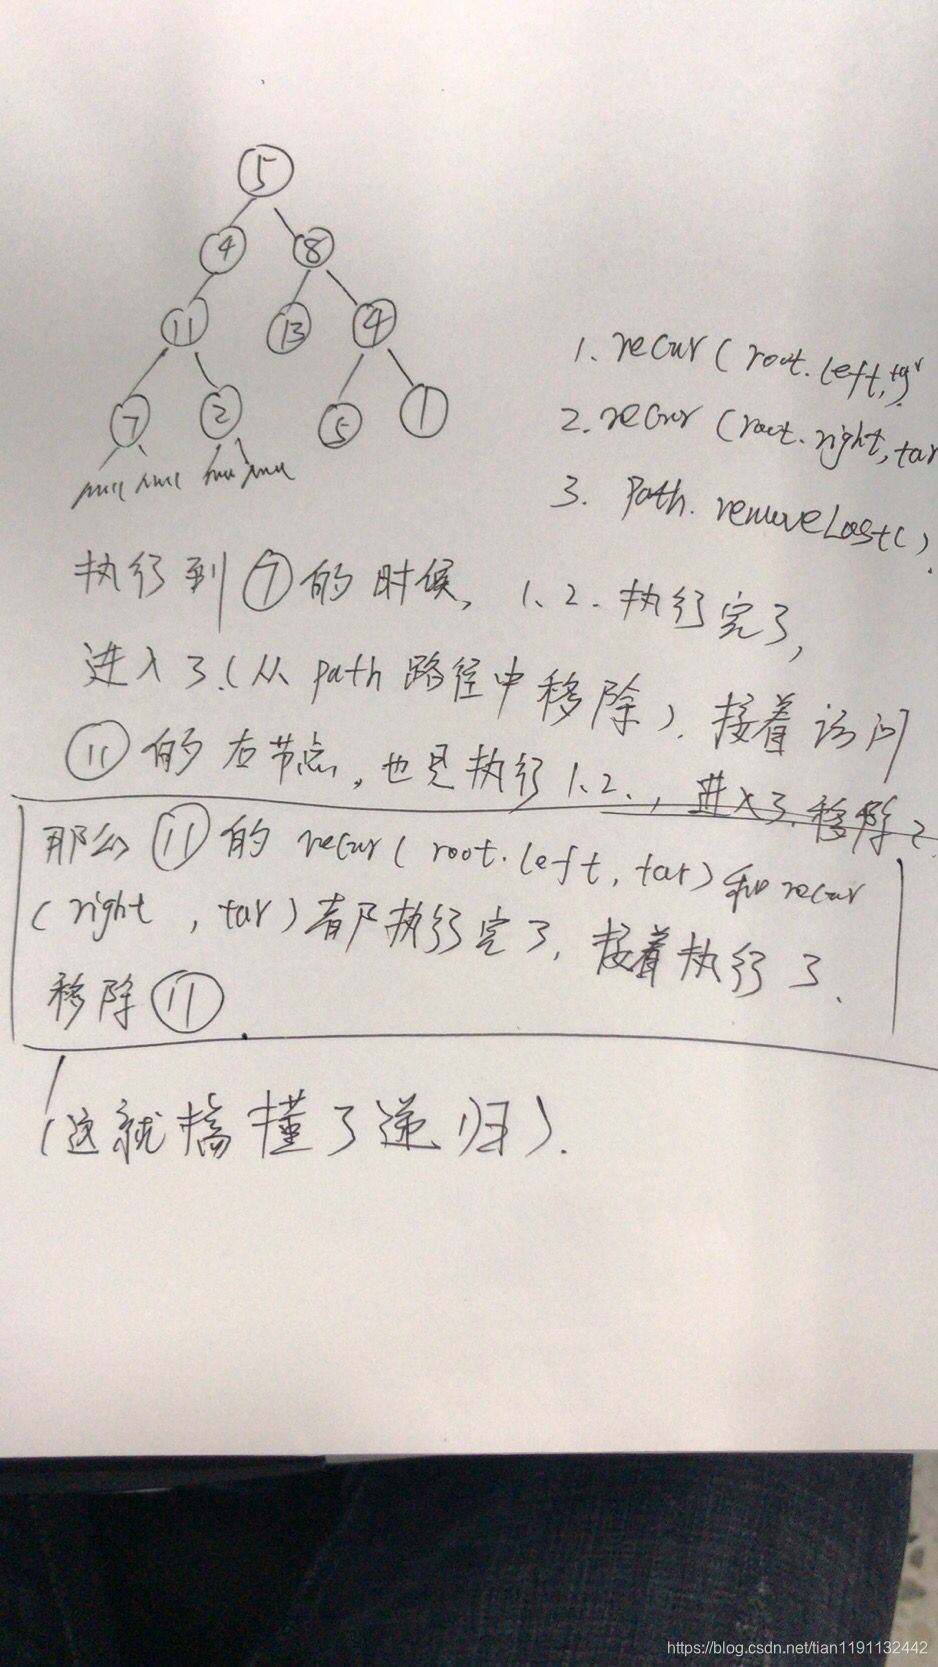 5
4 8
11 13 4
1. recur ( root.left, tar
7 2 5 1
2. recur ( root.right, tar
null null null null
3. Path. removeLast( ).
执行到⑦的时候, 1、2. 执行完了,
进入3.(从path路径中移除), 接着访问
⑪的右节点, 也是执行1.2., 进入3.移除2
那么⑪的recur( root.left, tar)和recur
( right , tar)都执行完了, 接着执行3.
移除⑪.
(这就搞懂了递归).
https://blog.csdn.net/tian1191132442